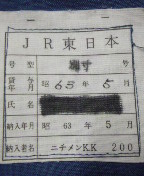 JR東日本
号型 寸 号
貸与年月 昭 63年 5月
氏名
納入年月 昭 63年 5月
納入者名 ニチメンK.K 200